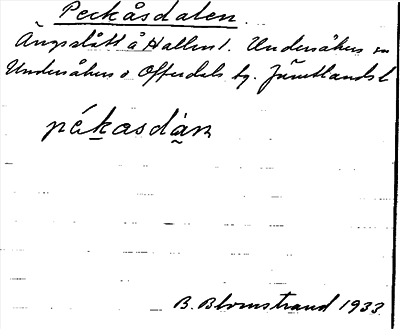 Peckåsdalen.
Ängsslått å Hallen 1. Undersåkers sn
Undersåkers o Offerdals tg. Jämtlands l
pékasdàn
B. Blomstrand 1933.